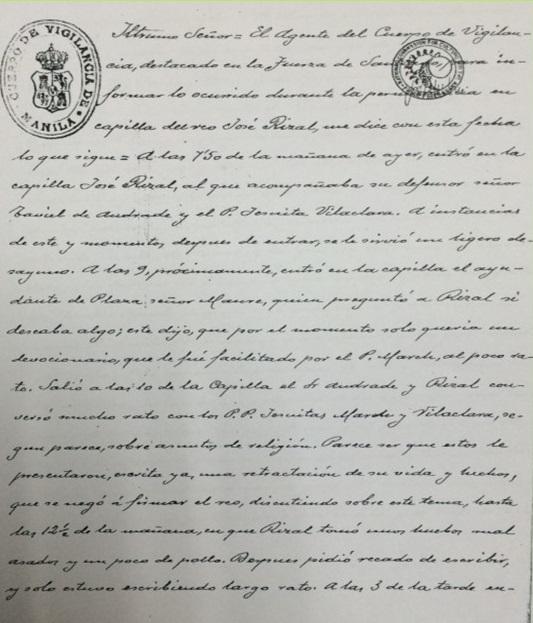 CUERPO DE VIGILANCIA DE MANILA
Iltrmo Señor = El Agente del Cuerpo de Vigilan-
cia, destacado en la Fuerza de in-
formar lo ocurrido durante la en
capilla del reo José Rizal, me dice con esta fecha
lo que sigue = A las 7'50 de la mañana de ayer, entró en la
capilla José Rizal, al que acompañaba su defensor señor
Taviel de Andrade y el P. Jesuita Vilaclara. A instancias
de este y momentos despues de entrar, se le sirvió un ligero de-
sayuno. A las 9, próximamente, entró en la capilla el ayu-
dante de Plaza señor Maure, quien preguntó a Rizal si
deseaba algo; este dijo, que por el momento solo queria un
devocionario, que le fué facilitado por el P. March, al poco ra-
to. Salió a las 10 de la Capilla el Sr Andrade y Rizal con-
versó mucho rato con los P.P. Jesuitas March y Vilaclara, se-
gun parece, sobre asuntos de religión. Parece ser que estos le
presentaron, escrita ya, una retractación de su vida y hechos,
que se negó á firmar el reo, discutiendo sobre este tema, hasta
las 12½ de la mañana, en que Rizal tomó unos huebos mal
asados y un poco de pollo. Despues pidió recado de escribir,
y solo estuvo escribiendo largo rato. A las 3 de la tarde en-